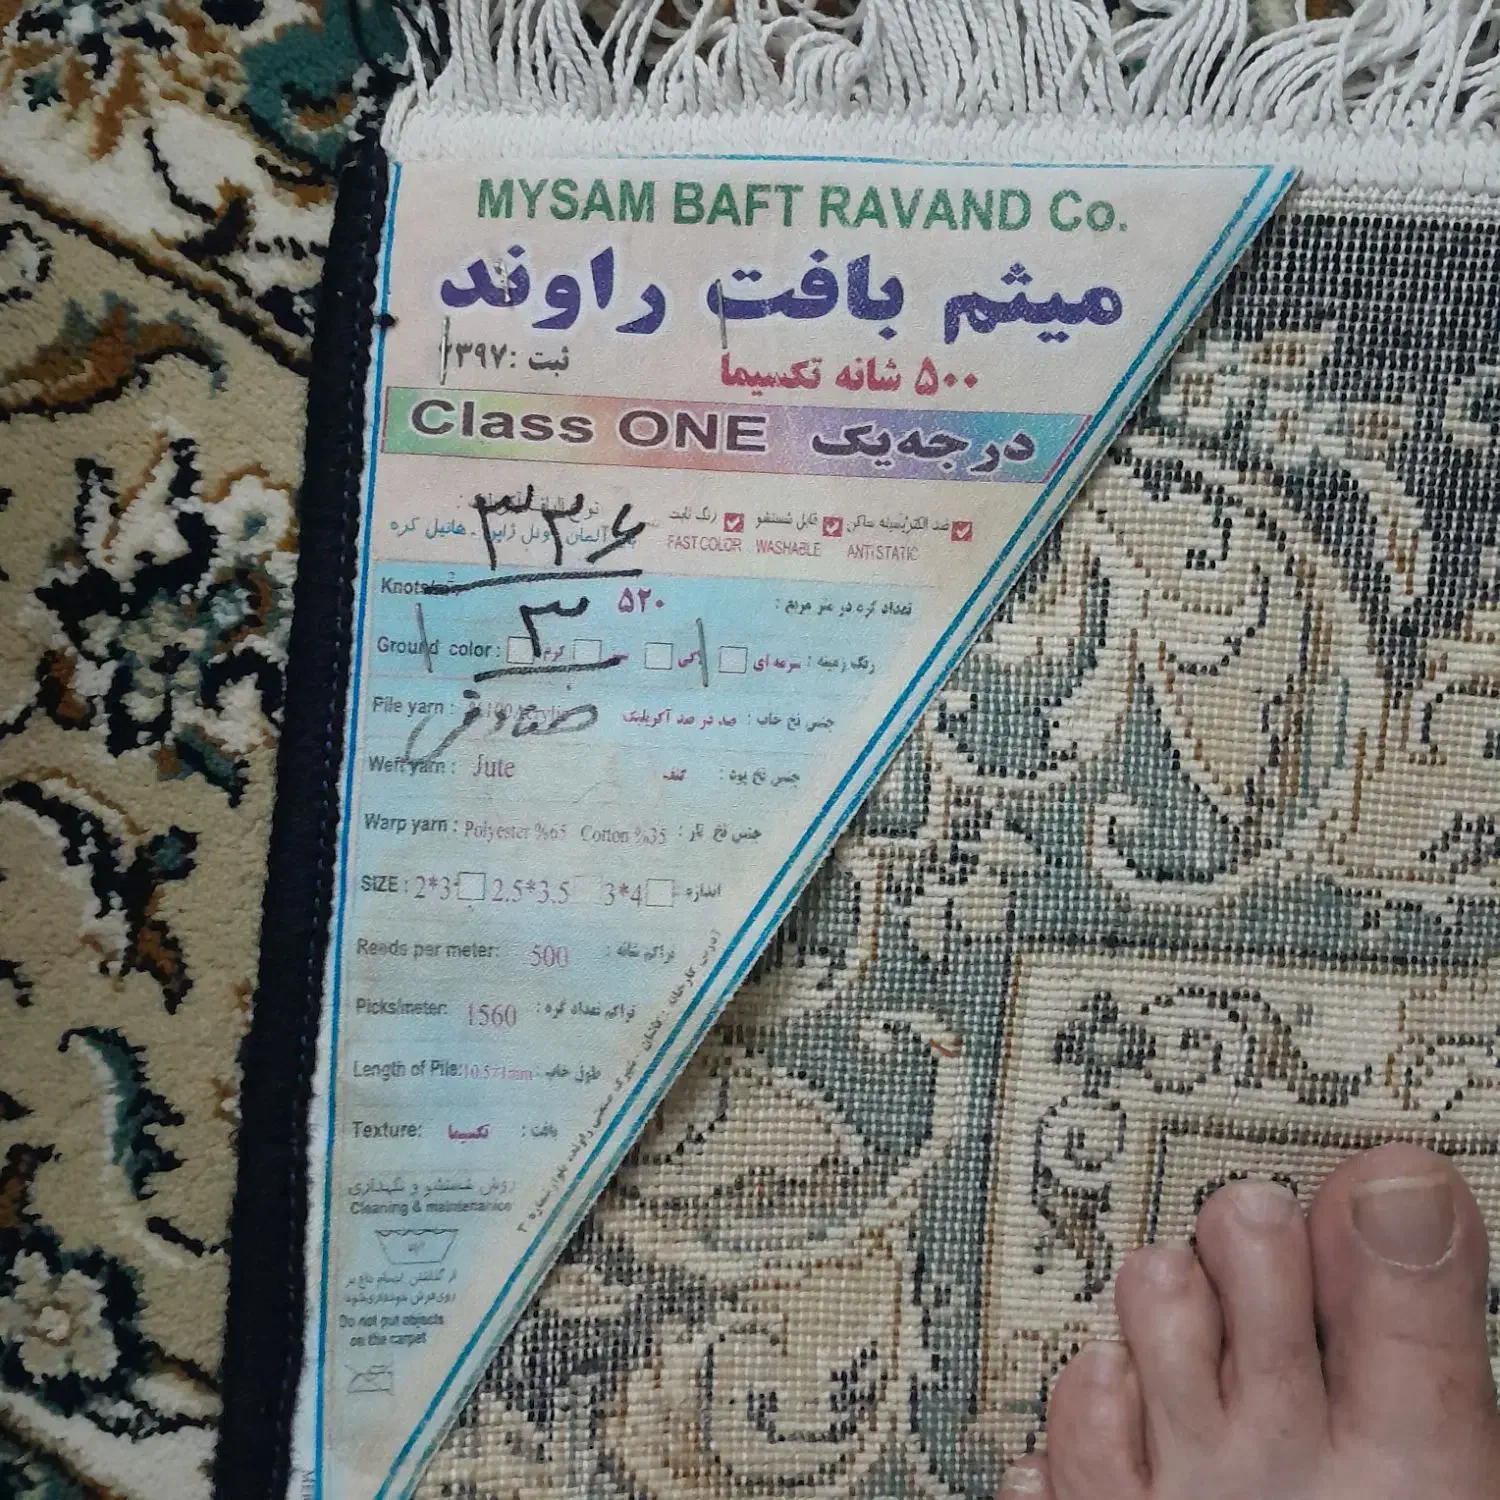 MYSAM BAFT RAVAND Co.
میثم بافت راوند
۵۰۰ شانه تکسیما
ثبت : ۱۳۹۷
Class ONE درجه‌یک
ضد الکتریسیته ساکن قابل شستشو رنگ ثابت
FAST COLOR WASHABLE ANTI STATIC
آلمان ژاپن ـ هانیل کره
۳۳۶
تعداد گره در متر مربع : ۵۲۰
۳
Ground color : کرم رنگ زمینه : سرمه ای
صادقی
Pile yarn : %100 Acrylic صد در صد آکریلیک جنس نخ خاب :
Weft yarn : Jute کنف جنس نخ پود :
Warp yarn : Polyester %65 Cotton %35 جنس نخ تار :
SIZE : 2*3 2.5*3.5 3*4 اندازه
Reeds per meter: 500 تراکم شانه :
Picks/meter: 1560 تراکم تعداد گره :
Length of Pile: طول خاب :
Texture: تکسیما بافت :
روش شستشو و نگهداری
Cleaning & maintenance
از گذاشتن اجسام داغ بر
روی فرش خودداری شود
Do not put objects
on the carpet
آدرس کارخانه : کاشان - شهرک صنعتی راوند، بلوار شماره ۳